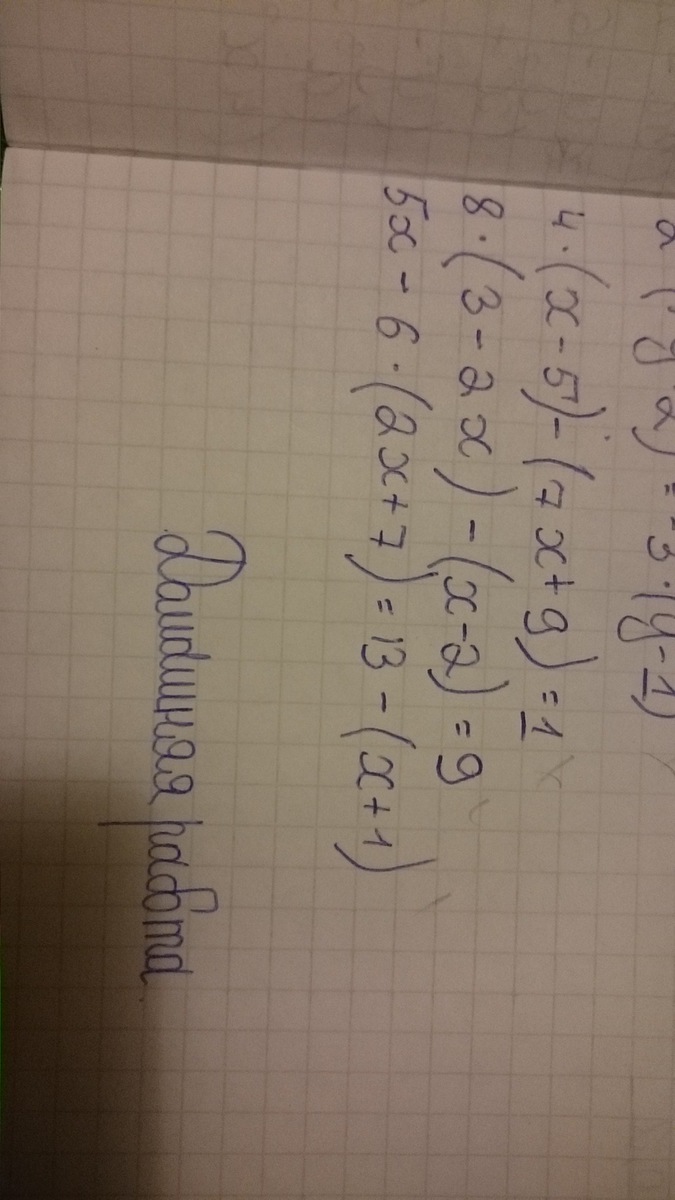 = -3·(y-1)
4·(x-5)-(7x+9)=1
8·(3-2x)-(x-2)=9
5x-6·(2x+7)=13-(x+1)
Домашняя работа